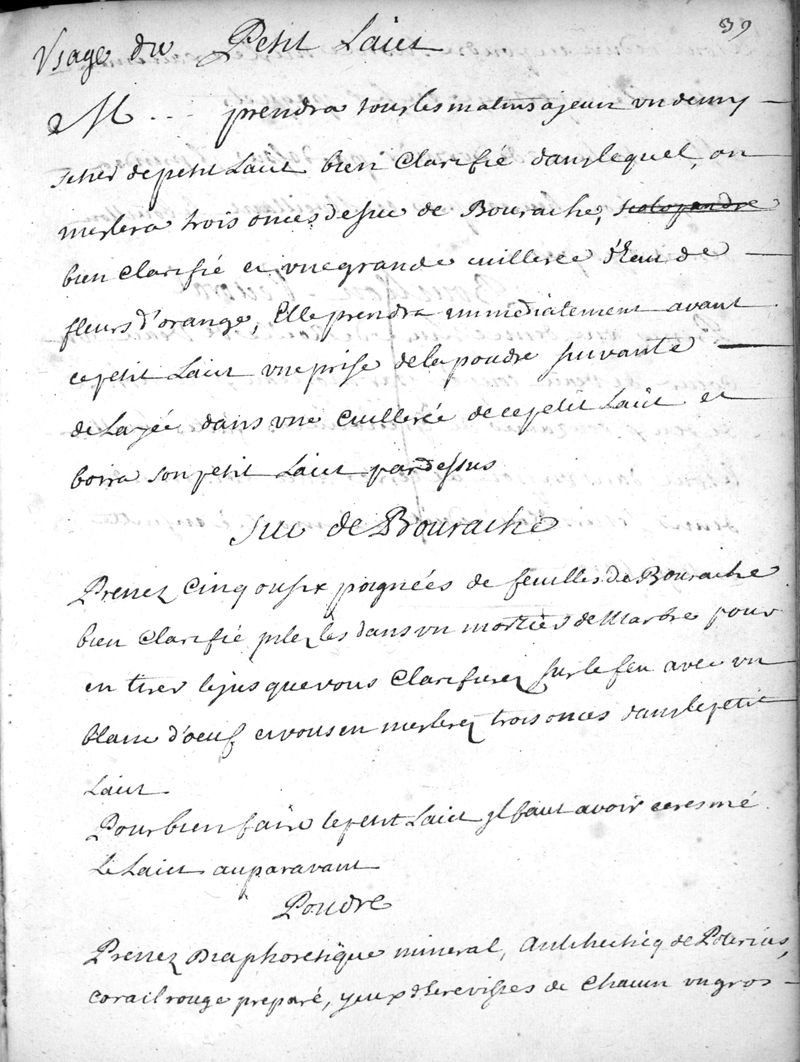 39
Usage du Petit Laict
M... prendra tous les matins a jeun un demy
setier de petit Laict bien Clarifié dans lequel, on
meslera trois onces de suc de Bourache, scolopandre
bien Clarifié et une grande cuillerée d'Eau de
fleurs d'orange, Elle prendra immediatement avant
ce petit Laict une prise de la poudre suivante
delayée dans une Cuillerée de ce petit Laict et
boira son petit Laict par dessus
Suc de Bourache
Prenez Cinq ou six poignées de feuilles de Bourache
bien Clarifié pilez les dans un mortier de Marbre pour
en tirer le jus que vous Clarifierez sur le feu avec un
blanc d'oeuf et vous en meslerez trois onces dans le petit
Laict
Pour bien faire le petit Laict il faut avoir ecresmé
Le Laict auparavant
Poudre
Prenez Diaphoretique mineral, Antihectiq de Poterius,
corail rouge preparé, yeux d'Ecrevisses de Chacun un gros